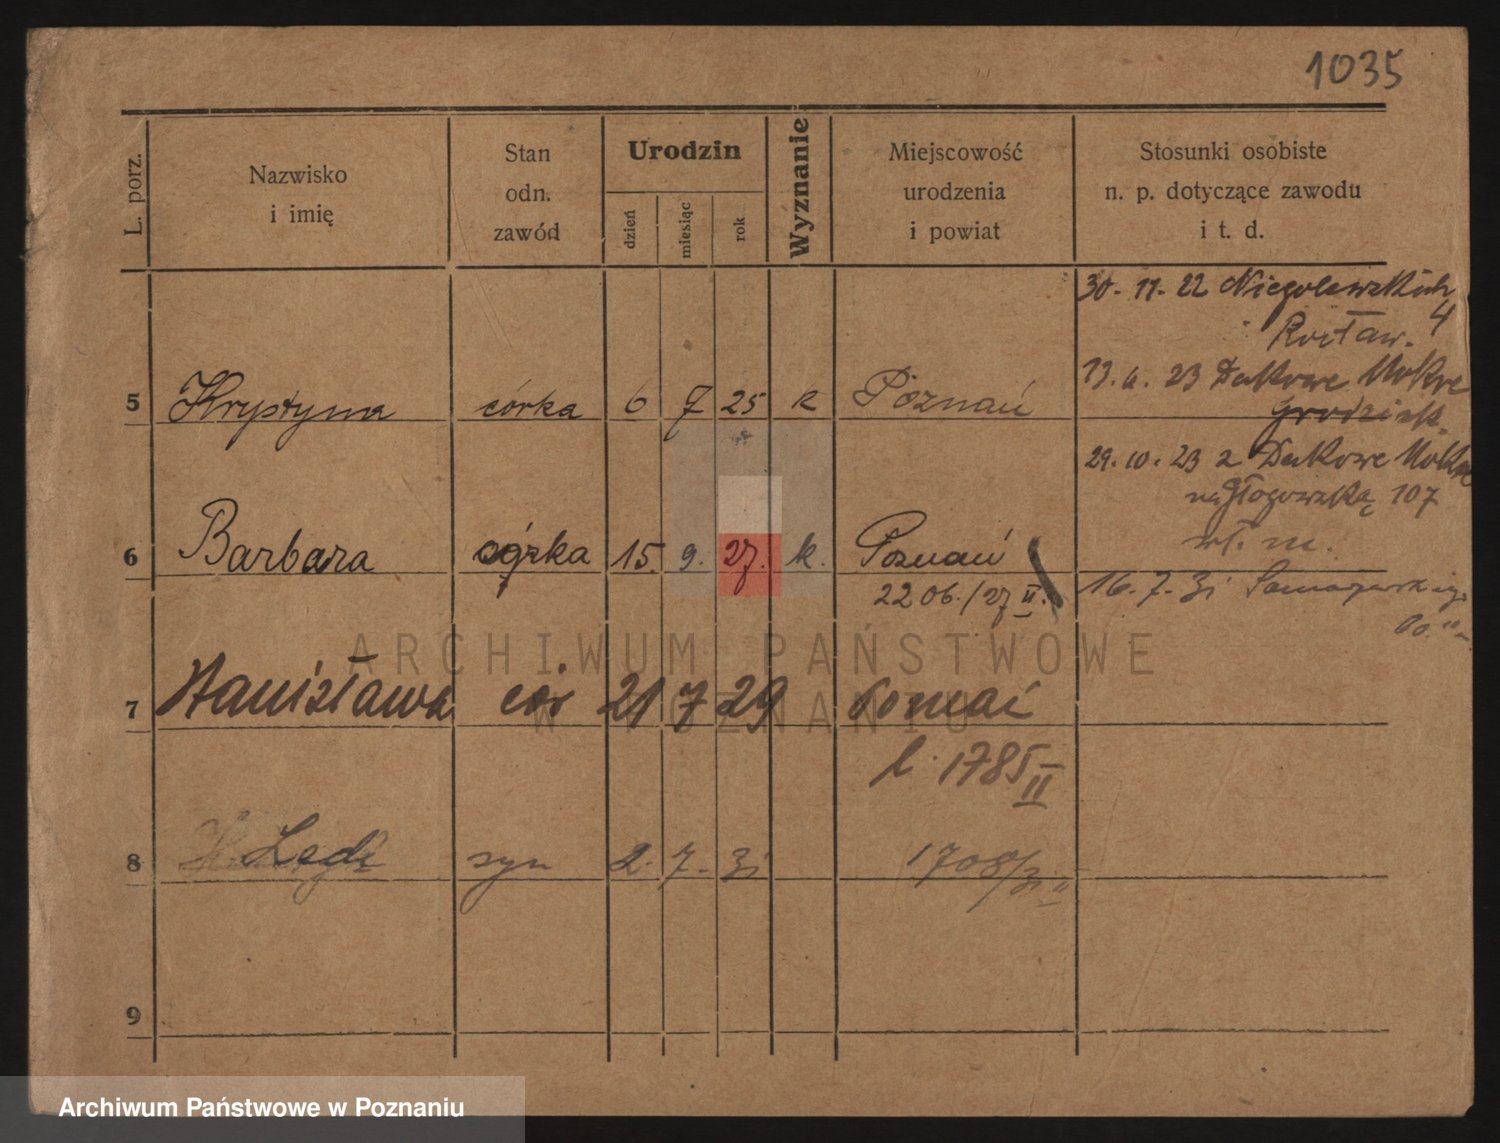 1035
L. porz.
Nazwisko
i imię
Stan
odn.
zawód
Urodzin
dzień
miesiąc
rok
Wyznanie
Miejscowość
urodzenia
i powiat
Stosunki osobiste
n. p. dotyczące zawodu
i t. d.
30. 11. 22 Niegolewskich 4
5 Krystyna córka 6 7 25 k Poznań
13. 6. 23 Dakowe Mokre
Grodzisk.
29. 10. 23 z Dakowe Mokre
na Głogowską 107
6 Barbara córka 15. 9. 27. k. Poznań
2206./27 II.
16. 7. 31
ARCHIWUM PAŃSTWOWE
W POZNANIU
7 Stanisława cór 21 7 29
l. 1785 II
8 syn 2. 7. 31 1708/31 II
9
Archiwum Państwowe w Poznaniu